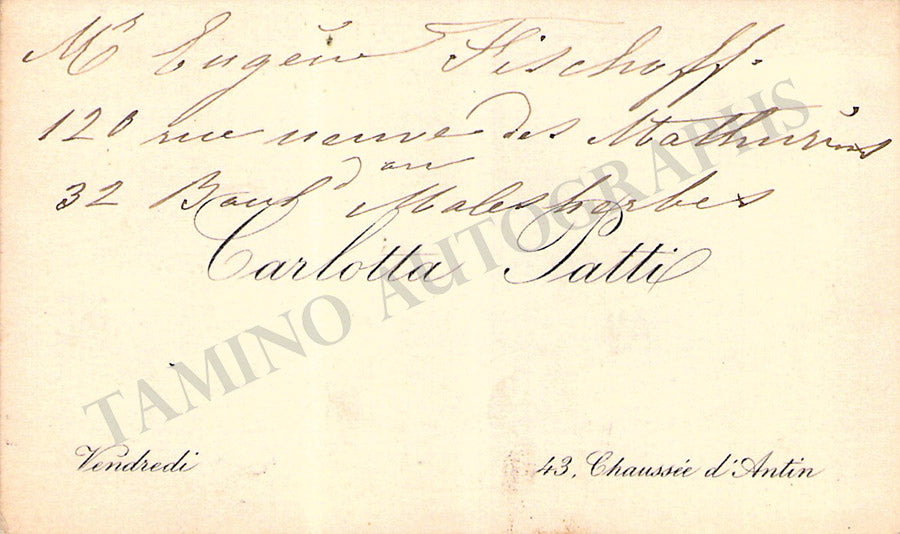 Mr Eugène Fischoff.
120 rue neuve des Mathurins
ou
32 Boul d Malesherbes
Carlotta Patti
Vendredi
43, Chaussée d'Antin
TAMINO AUTOGRAPHS